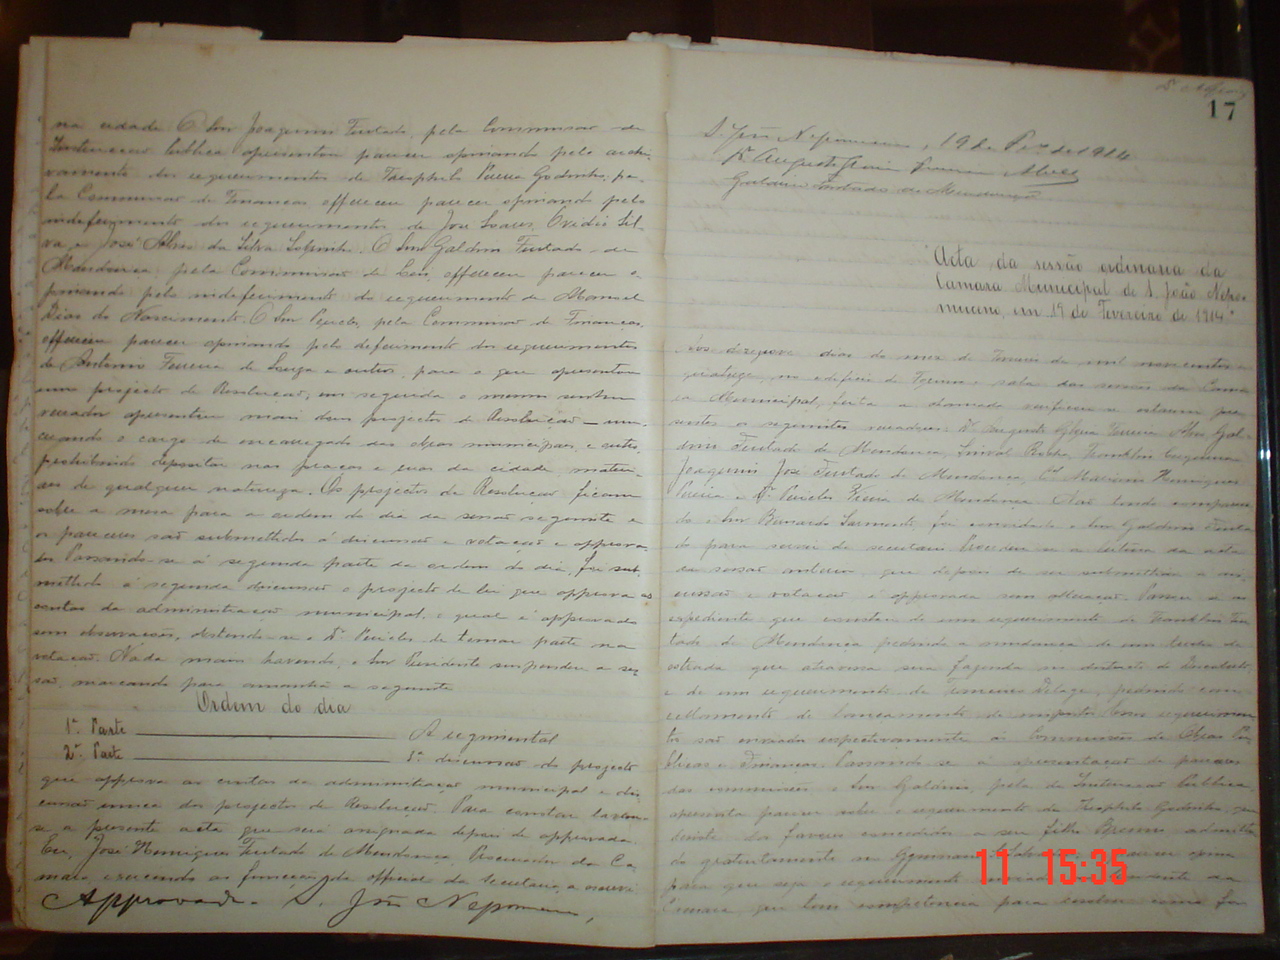 na cidade. O Snr Joaquim Furtado, pela Commissão de
Instrucção Publica apresentou parecer opinando pelo archi-
vamento dos requerimentos de Theophilo Pereira Godinho; pe-
la Commissão de Finanças offerece parecer opinando pelo
indeferimento dos requerimentos de José Soares, Ovidio Sil-
va e José Alves da Silva Sobrinho. O Snr Galdino Furtado de
Mendonça, pela Commissão de Leis, offereceu parecer o
pinando pelo indeferimento do requerimento de Manoel
Dias do Nascimento. O Snr Pericles, pela Commissão de Finanças,
offerece parecer opinando pelo deferimento dos requerimentos
de Antonio Ferreira de Souza e outros, para o que apresentou
um projecto de Resolução, em seguida o mesmo senhor
vereador apresentou mais dous projectos de Resolução
creando o cargo de encarregado das obras municipaes, e outro
prohibindo depositar nas praças e ruas da cidade materi-
aes de qualquer natureza. Os projectos de Resolução ficam
sobre a mesa para a ordem do dia da sessão seguinte e
os pareceres são submettidos á discussão e votação e approva-
dos. Passando-se á segunda parte da ordem do dia, foi sub-
mettido á segunda discussão o projecto de lei que approva as
contas da administração municipal, o qual é approvado
sem observação, abstendo-se o Dr Pericles de tomar parte na
votação. Nada mais havendo, o Snr Presidente suspendeu a ses-
são, marcando para amanhã a seguinte
Ordem do dia
1ª Parte A regimental
2ª Parte 3ª discussão do projecto
que approva as contas da administração municipal e dis-
cussão unica dos projectos de Resolução. Para constar lavrou-
se a presente acta que será assignada depois de approvada.
Eu, José Henriques Furtado de Mendonça, Procurador da Ca-
mara, exercendo as funcções de official da Secretaria, a escrevi.
Approvada. S. João Nepomuceno,
17
S. João Nepomuceno, 19 de Fev. de 1914
Dr Augusto Gloria Ferreira Alves
Galdino Furtado de Mendonça
Acta da sessão ordinaria da
Camara Municipal de S. João Nepo-
muceno, em 19 de Fevereiro de 1914.
Aos dezenove dias do mez de Fevereiro de mil novecentos e
quatorze, no edificio do Forum e sala das sessões da Cama
ra Municipal, feita a chamada verificou-se estarem pre
sentes os seguintes vereadores: Dr Augusto Gloria Ferreira Alves, Gal-
dino Furtado de Mendonça, Franklin
Joaquim José Furtado de Mendonça, Cel Marianno Henriques
Pereira e Dr Pericles Vieira de Mendonça. Não tendo compareci
do o Snr Bernardo Sarmento, foi convidado o Snr Galdino Furta
do para servir de secretario. Procedeu-se a leitura da acta
da sessão anterior, que depois de ser submettida a dis
cussão e votação é approvada sem alteração. Passou-se ao
expediente que constou de um requerimento de Franklin Fur
tado de Mendonça pedindo a mudança de um trecho de
estrada que atravessa sua fazenda no districto de Descoberto,
e de um requerimento de pedindo can
cellamento de lançamento de impostos. Esses requerimen
tos são enviados respectivamente ás Commissões de Obras Pu
blicas e Finanças. Passando-se á apresentação de pareceres
das commissões, o Snr Galdino, pela de Instrucção Publica,
apresenta parecer sobre o requerimento de Theophilo Godinho, que
desiste dos favores concedidos a seu filho admitti
do gratuitamente no Gymnasio
para que seja o requerimento
Camara, que tem competencia para resolver
11 15:35